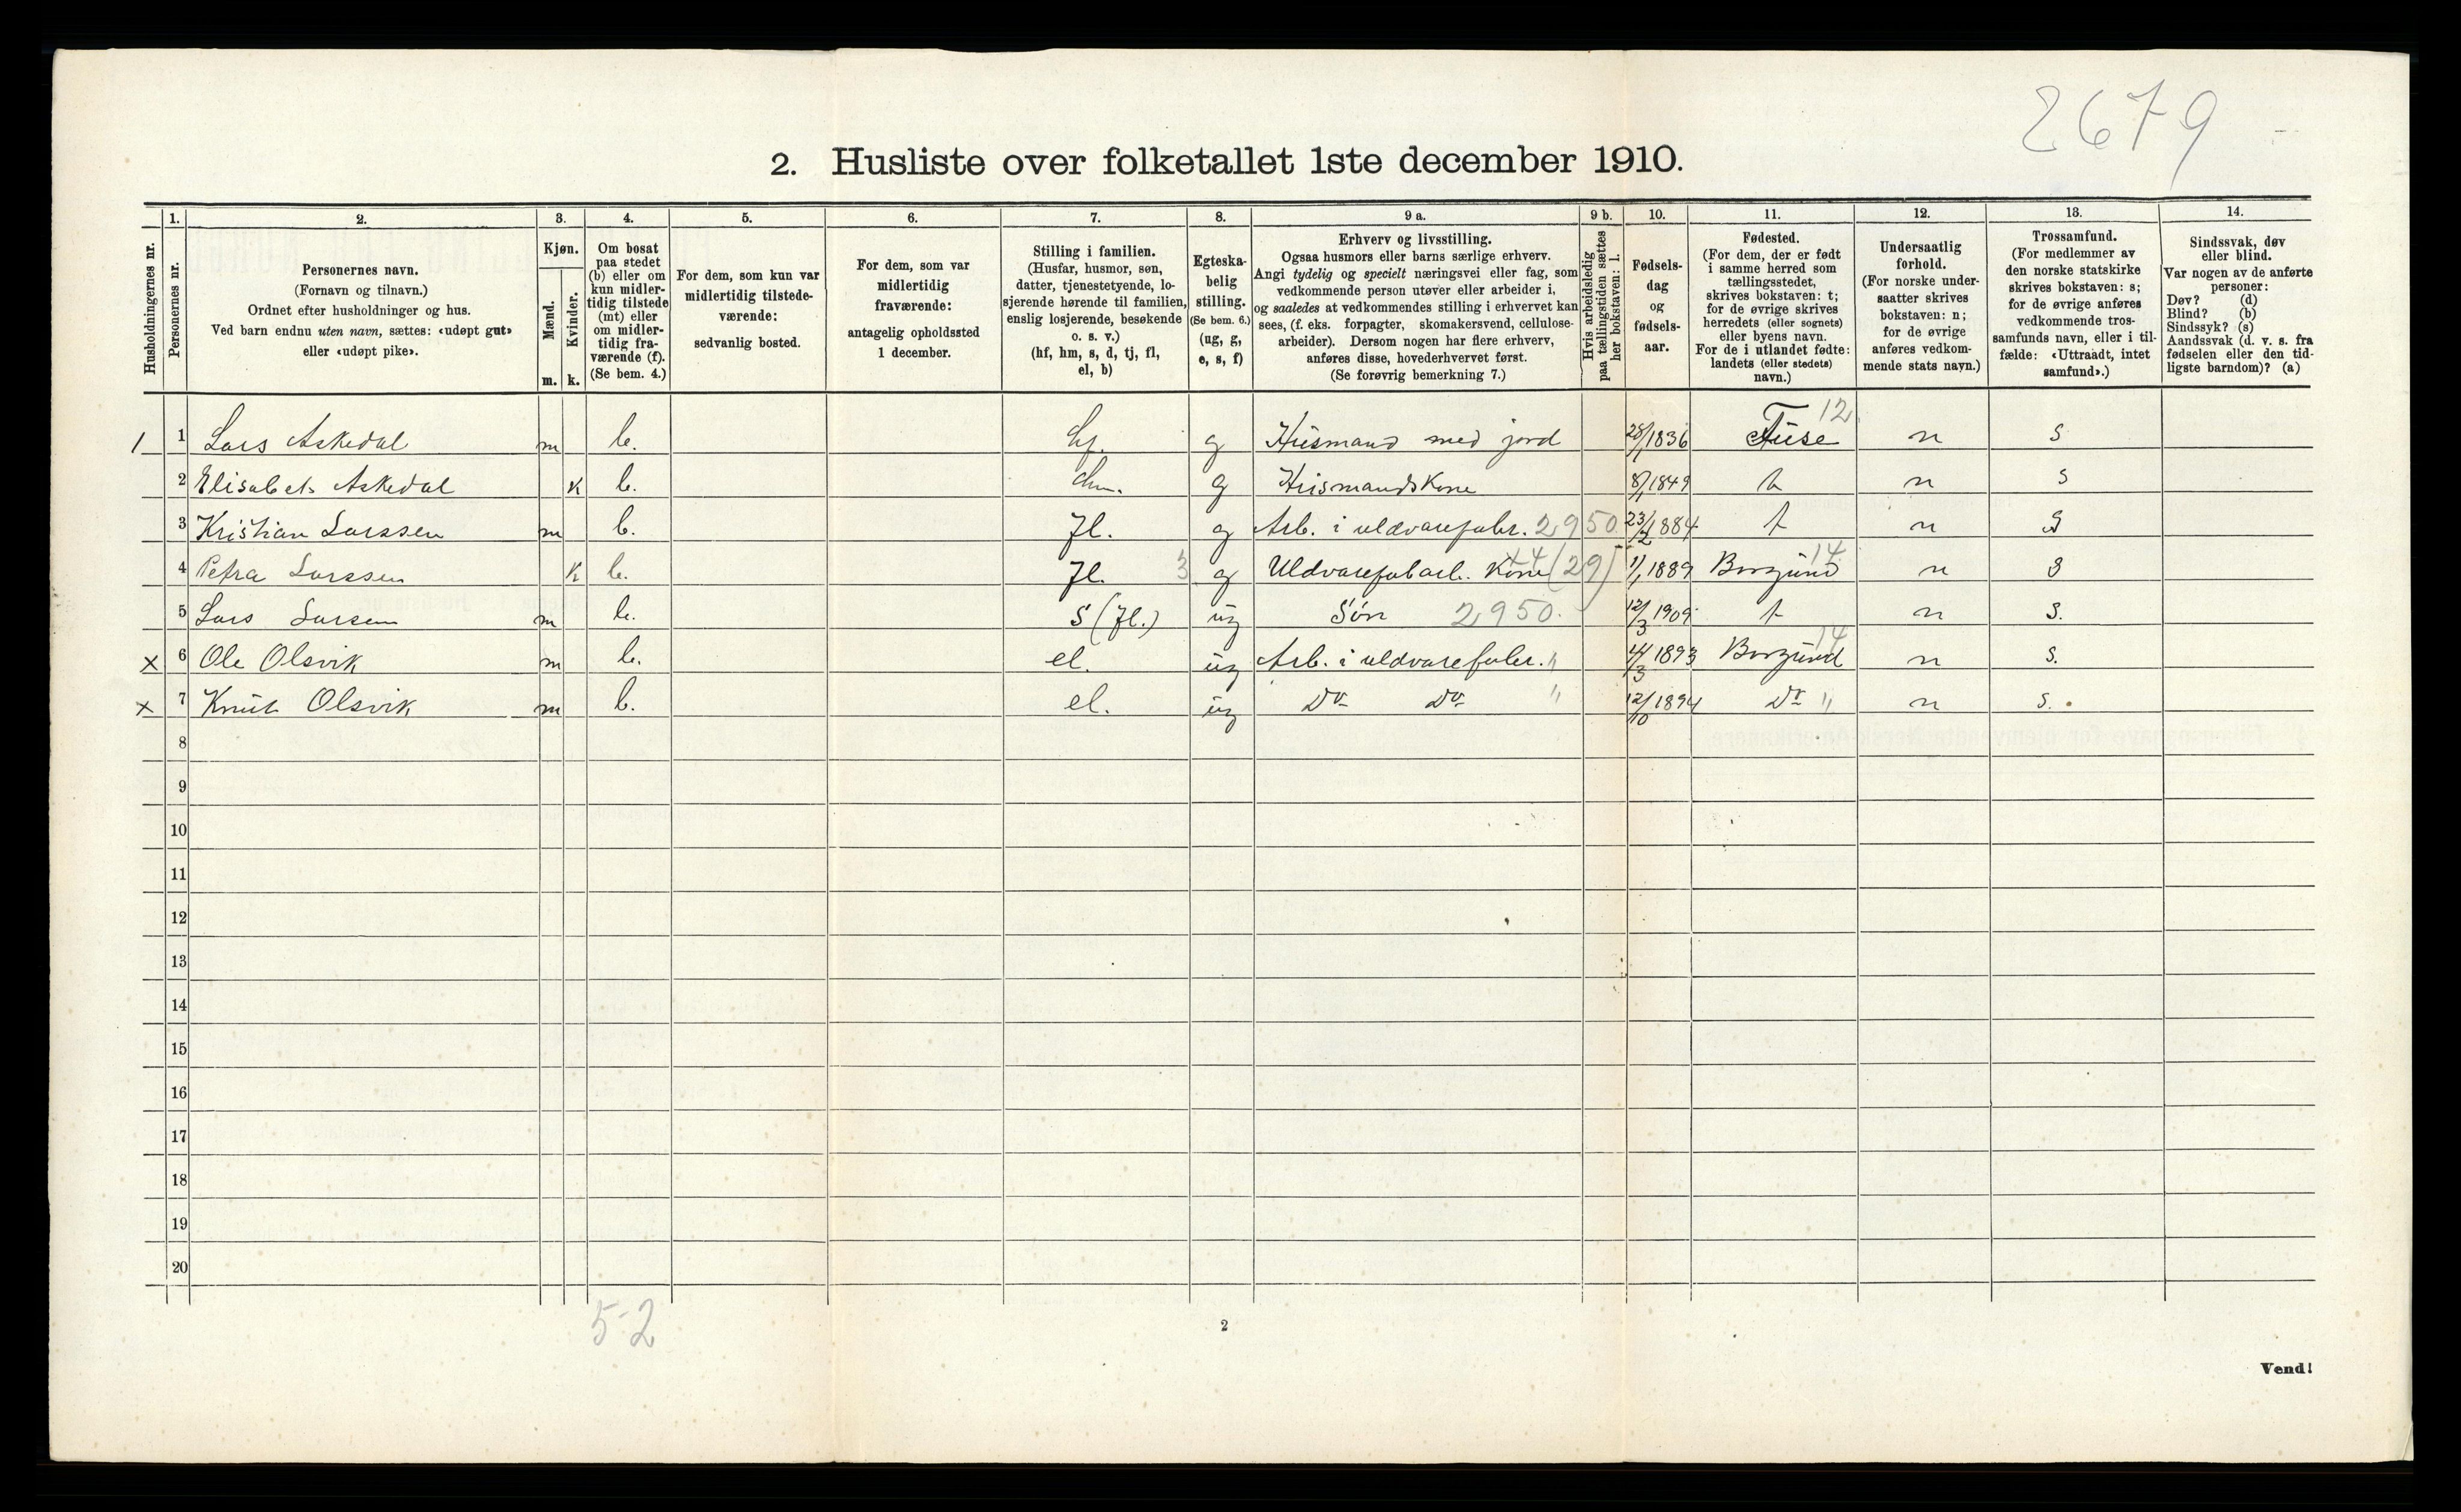 2679
2. Husliste over folketallet 1ste december 1910.
Husholdningernes nr.
1. Personernes nr.
2. Personernes navn.
(Fornavn og tilnavn.)
Ordnet efter husholdninger og hus.
Ved barn endnu uten navn, sættes: «udøpt gut»
eller «udøpt pike».
3. Kjøn.
Mænd. m.
Kvinder. k.
4. Om bosat
paa stedet
(b) eller om
kun midler-
tidig tilstede
(mt) eller
om midler-
tidig fra-
værende (f).
(Se bem. 4.)
5. For dem, som kun var
midlertidig tilstede-
værende:
sedvanlig bosted.
6. For dem, som var
midlertidig
fraværende:
antagelig opholdssted
1 december.
7. Stilling i familien.
(Husfar, husmor, søn,
datter, tjenestetyende, lo-
sjerende hørende til familien,
enslig losjerende, besøkende
o. s. v.)
(hf, hm, s, d, tj, fl,
el, b)
8. Egteska-
belig
stilling.
(Se bem. 6.)
(ug, g,
e, s, f)
9 a. Erhverv og livsstilling.
Ogsaa husmors eller barns særlige erhverv.
Angi tydelig og specielt næringsvei eller fag, som
vedkommende person utøver eller arbeider i,
og saaledes at vedkommendes stilling i erhvervet kan
sees, (f. eks. forpagter, skomakersvend, cellulose-
arbeider). Dersom nogen har flere erhverv,
anføres disse, hovederhvervet først.
(Se forøvrig bemerkning 7.)
9 b. Hvis arbeidsledig
paa tællingstiden sættes
her bokstaven: l.
10. Fødsels-
dag
og
fødsels-
aar.
11. Fødested.
(For dem, der er født
i samme herred som
tællingsstedet,
skrives bokstaven: t;
for de øvrige skrives
herredets (eller sognets)
eller byens navn.
For de i utlandet fødte:
landets (eller stedets)
navn.)
12. Undersaatlig
forhold.
(For norske under-
saatter skrives
bokstaven: n;
for de øvrige
anføres vedkom-
mende stats navn.)
13. Trossamfund.
(For medlemmer av
den norske statskirke
skrives bokstaven: s;
for de øvrige anføres
vedkommende tros-
samfunds navn, eller i til-
fælde: «Uttraadt, intet
samfund».)
14. Sindssvak, døv
eller blind.
Var nogen av de anførte
personer:
Døv? (d)
Blind? (b)
Sindssyk? (s)
Aandssvak (d. v. s. fra
fødselen eller den tid-
ligste barndom)? (a)
1 1 Lars Askedal m b. hf. g Husmand med jord 28/1 1836 Fuse 12 n s
2 Elisabet Askedal k b. hm. g Husmandskone 8/1 1849 t n s
3 Kristian Larssen m b. fl. g Arb. i uldvarefabr. 2950 23/2 1884 t n s
4 Petra Larssen k b. fl. 3 g Uldvarefabarb. Kone (29) 1/1 1889 Borgund 14 n s
5 Lars Larsen m b. s (fl.) ug Søn 2950. 12/3 1909 t n s.
x 6 Ole Olsvik m b. el. ug Arb. i uldvarefabr. " 4/3 1893 Borgund 14 n s.
x 7 Knut Olsvik m b. el. ug Do Do " 12/10 1894 Do " n s.
8
9
10
11
12
13
14
15
16
17
18
19
20
5-2
2
Vend!